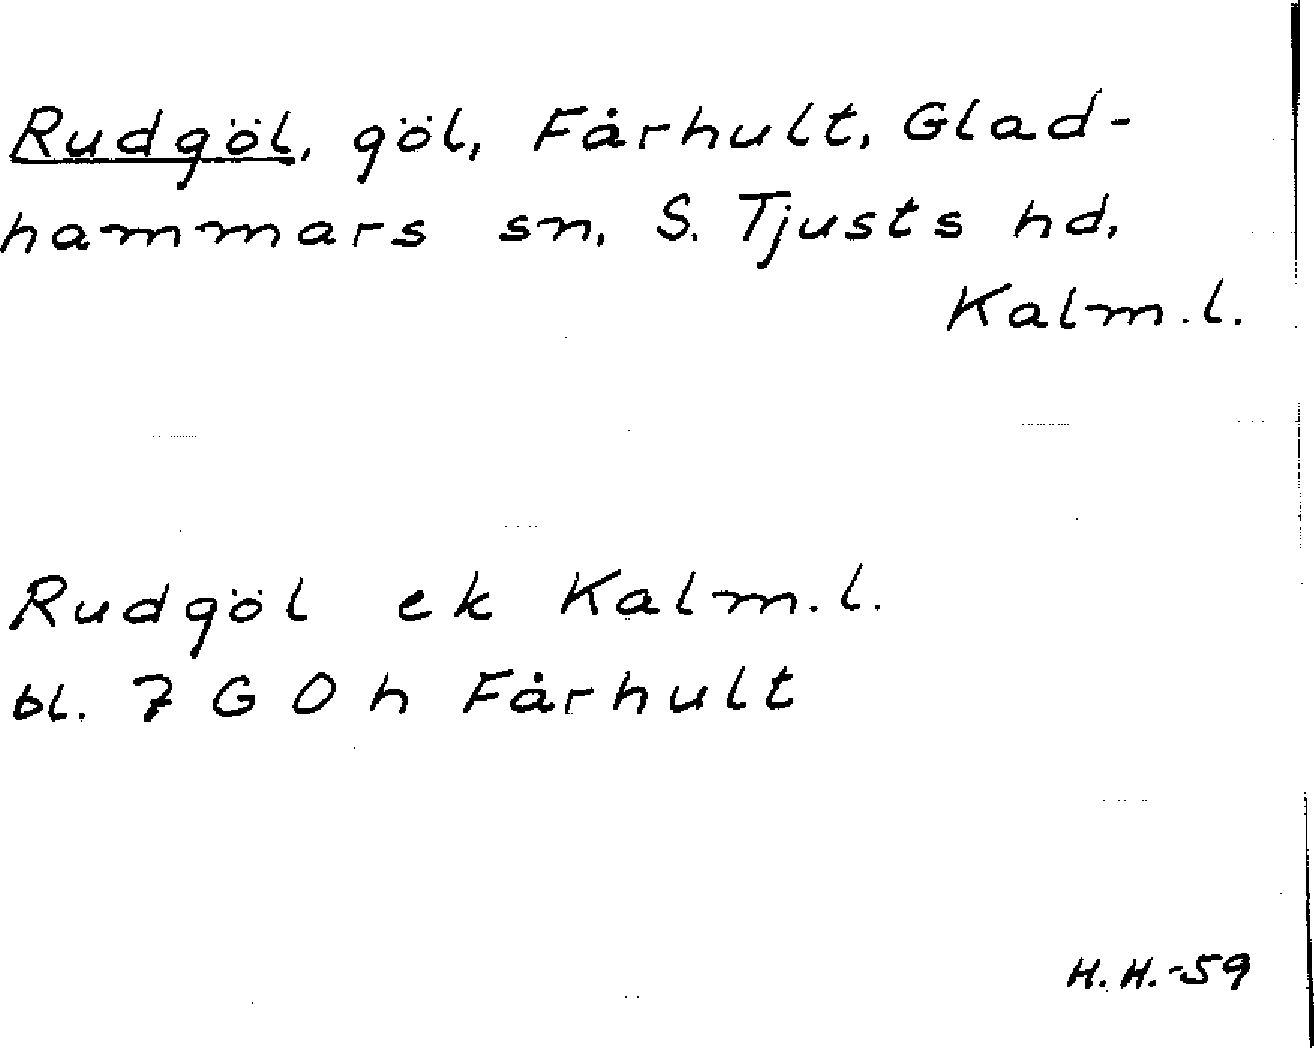 Rudgöl, göl, Fårhult, Glad-
hammars sn, S. Tjusts hd,
Kalm.l.
Rudgöl ek Kalm.l.
bl. 7 G O h Fårhult
H.H.-59